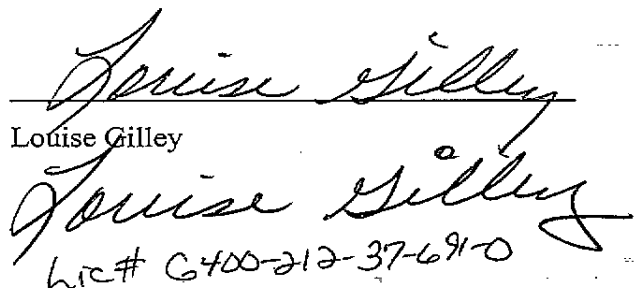 Louise Gilley
Louise Gilley
Louise Gilley
Lic# G400-212-37-691-0